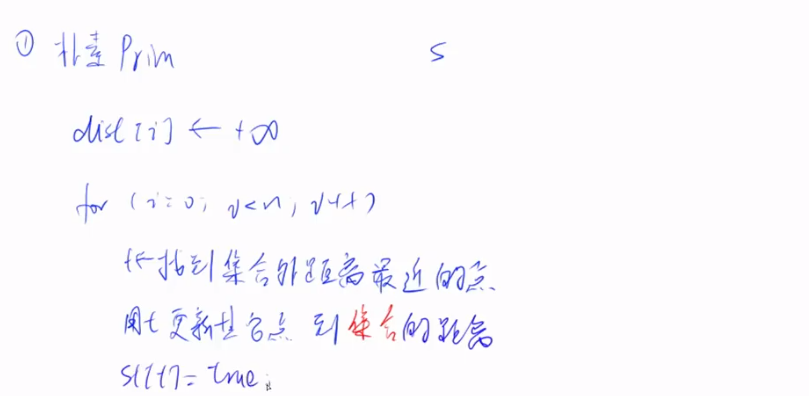 ① 朴素 Prim
S
dist[i] ← +∞
for (i=0; i<n; i++)
t←找到集合外距离最近的点
用t更新其它点到集合的距离
st[t]=true;